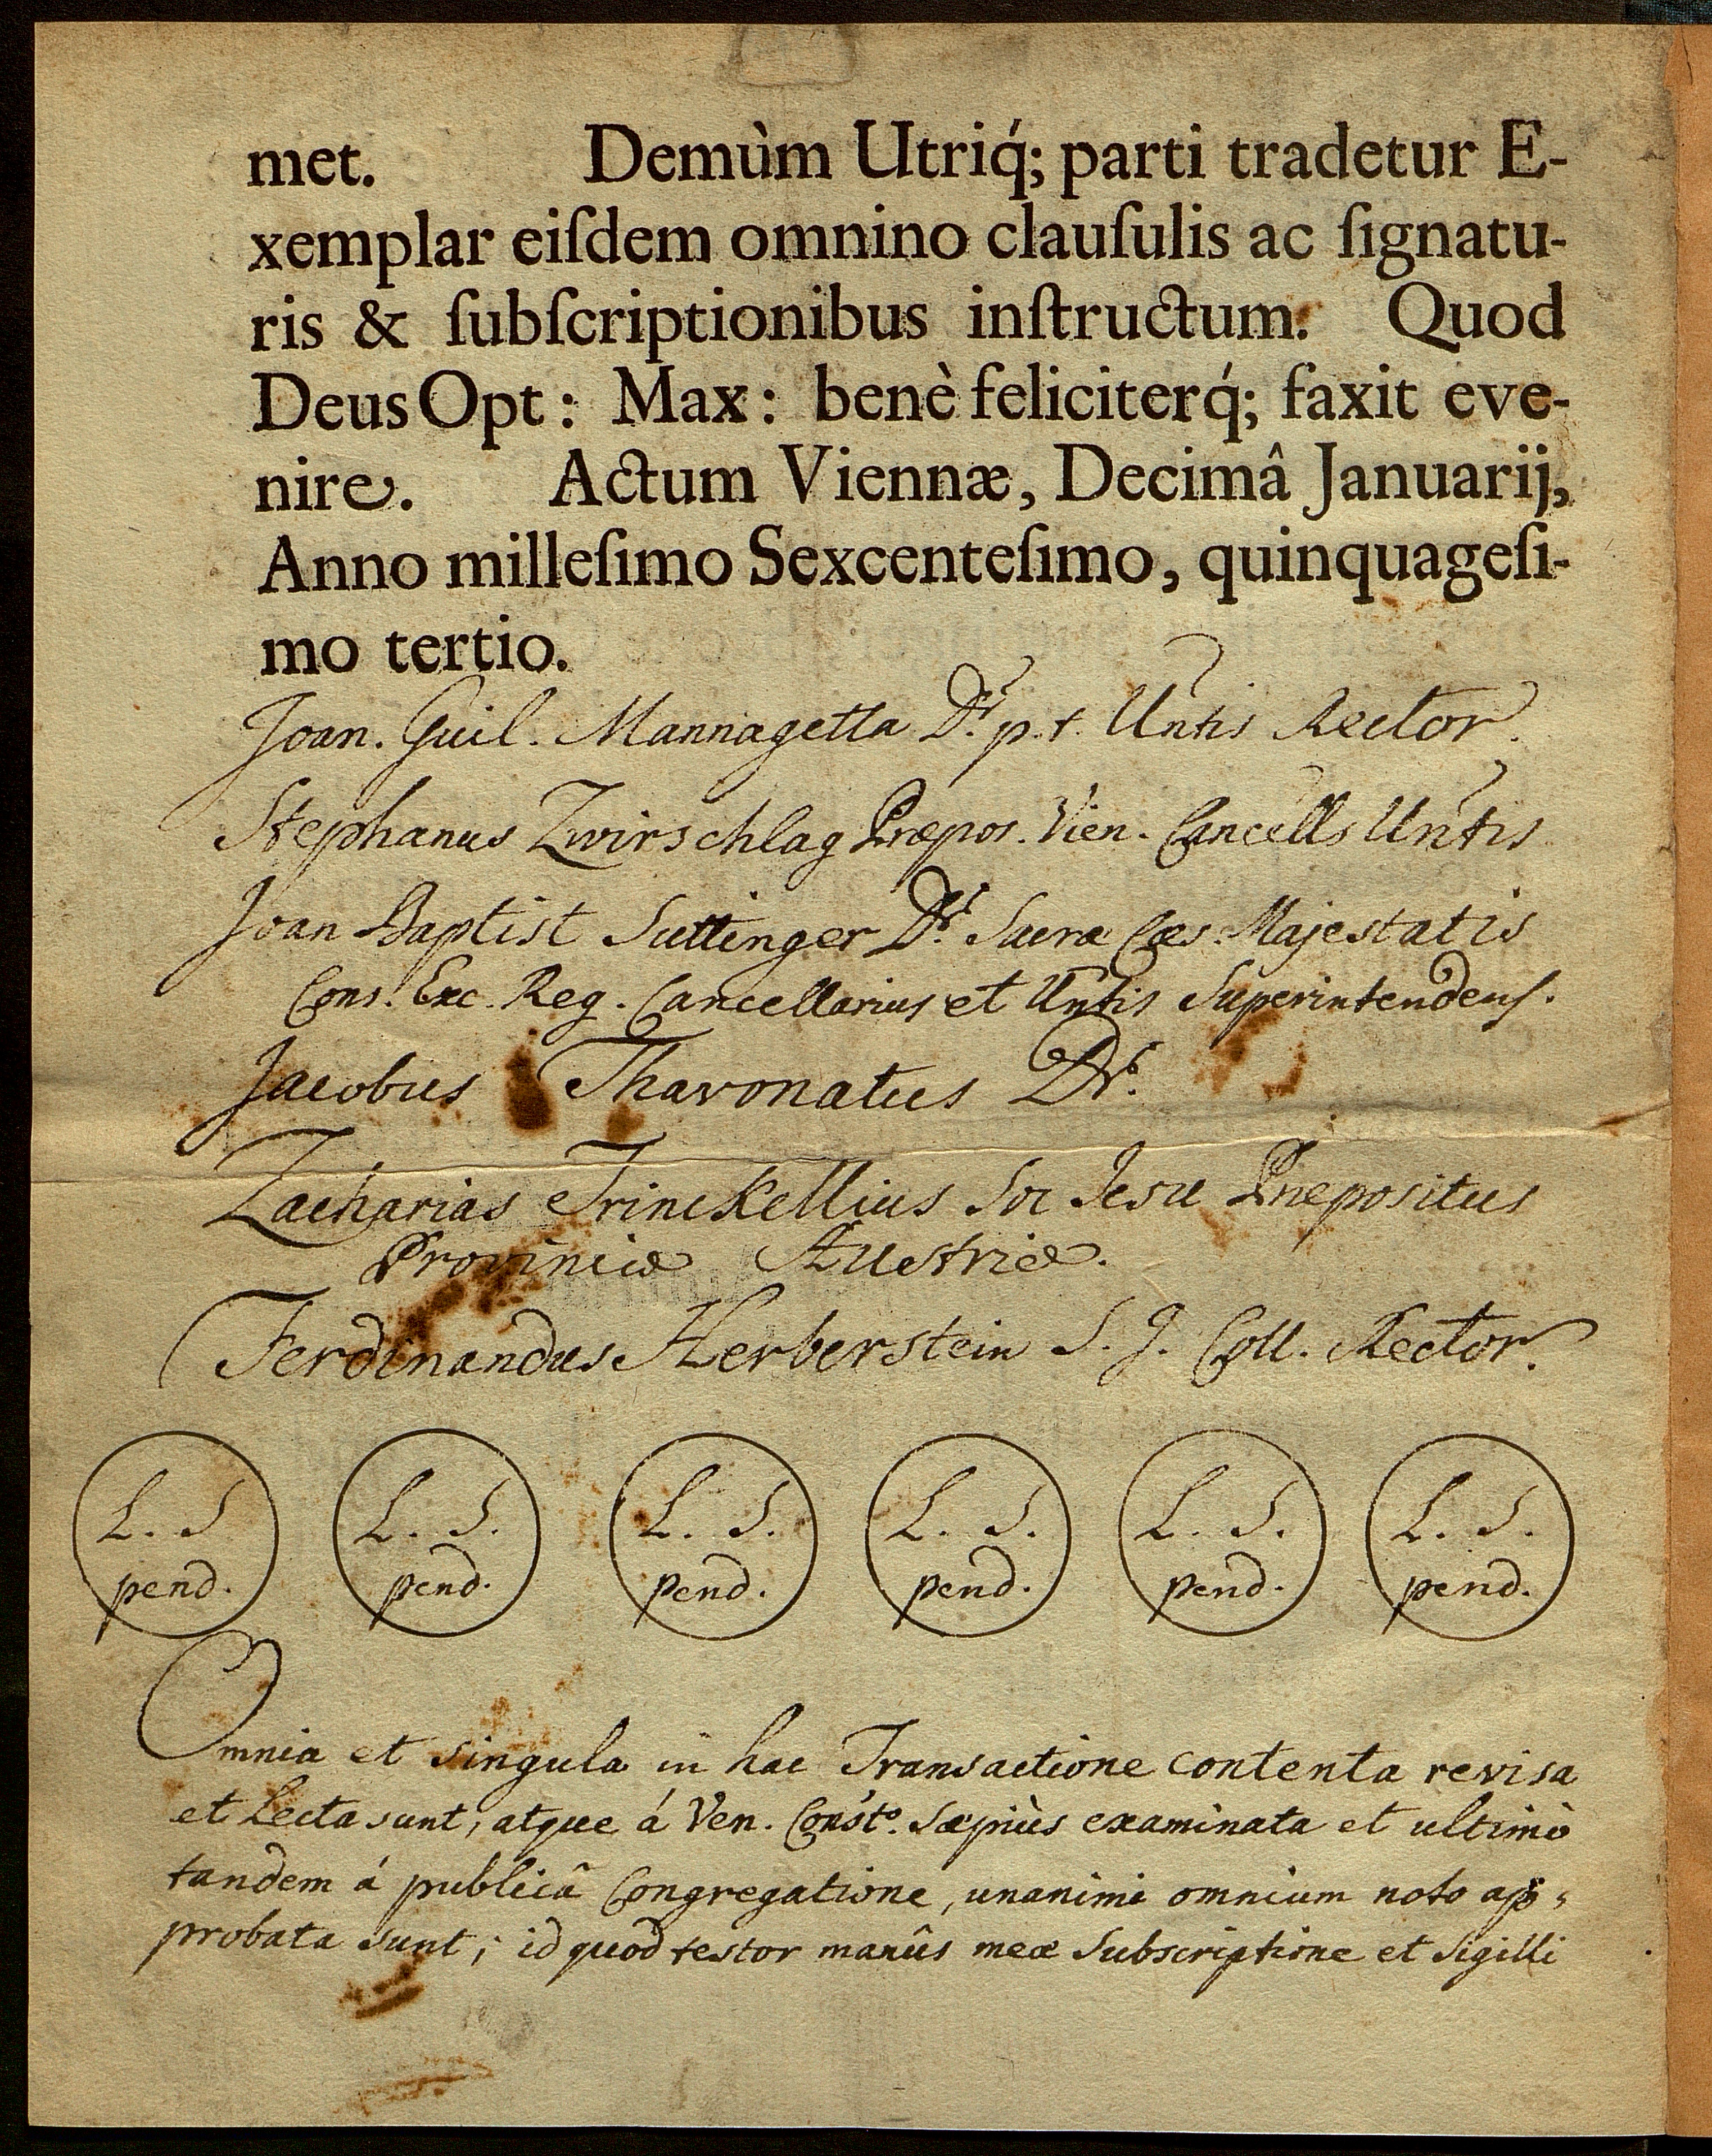 met. Demùm Utriq́; parti tradetur E-
xemplar eiſdem omnino clauſulis ac ſignatu-
ris & ſubſcriptionibus inſtructum. Quod
Deus Opt: Max: benè feliciterq́; faxit eve-
nire. Actum Viennæ, Decimâ Januarij,
Anno milleſimo Sexcenteſimo, quinquageſi-
mo tertio.
Joan. Guil. Mannagetta Dr. p. t. Untis Rector.
Stephanus Zwirschlag Præpos. Vien. Cancells Untis
Joan Baptist Suttinger Dr. Sacræ Cæs. Majestatis
Cons. Exc. Reg. Cancellarius et Untis Superintendens.
Jacobus Thavonatus Dr.
Zacharias Trinckellius Soc Jesu Præpositus
Provinciæ Austriæ.
Ferdinandus Herberstein S. J. Coll. Rector.
L. S L. S. L. S. L. S. L. S. L. S.
pend. pend. pend. pend. pend. pend.
Omnia et singula in hac Transactione contenta revisa
et Lecta sunt, atque á Ven. Consto. Sæpiùs examinata et ultimò
tandem á publicâ Congregatione, unanimi omnium noto ap=
probata sunt; id quod testor manûs meæ Subscriptione et Sigilli